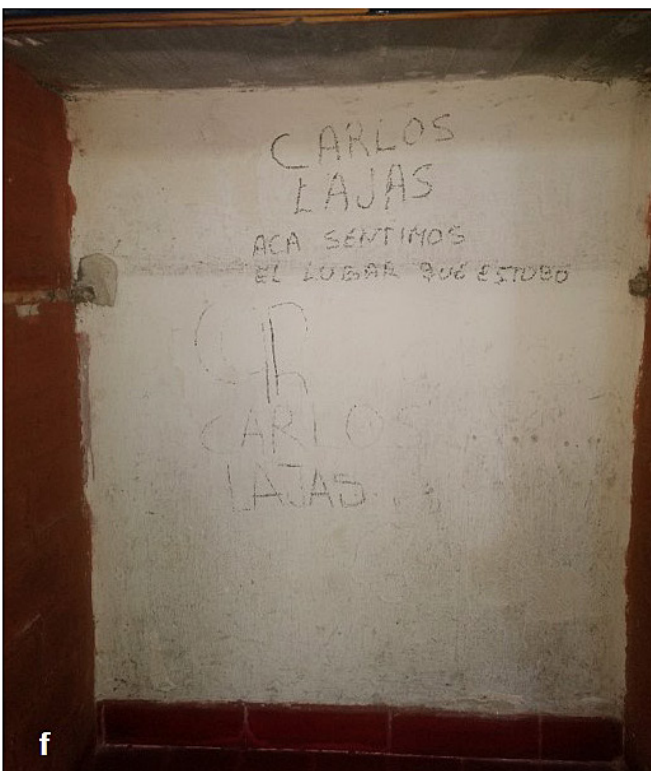 CARLOS
LAJAS
ACA SENTIMOS
EL LUGAR QUE ESTUBO
CARLOS
LAJAS
f